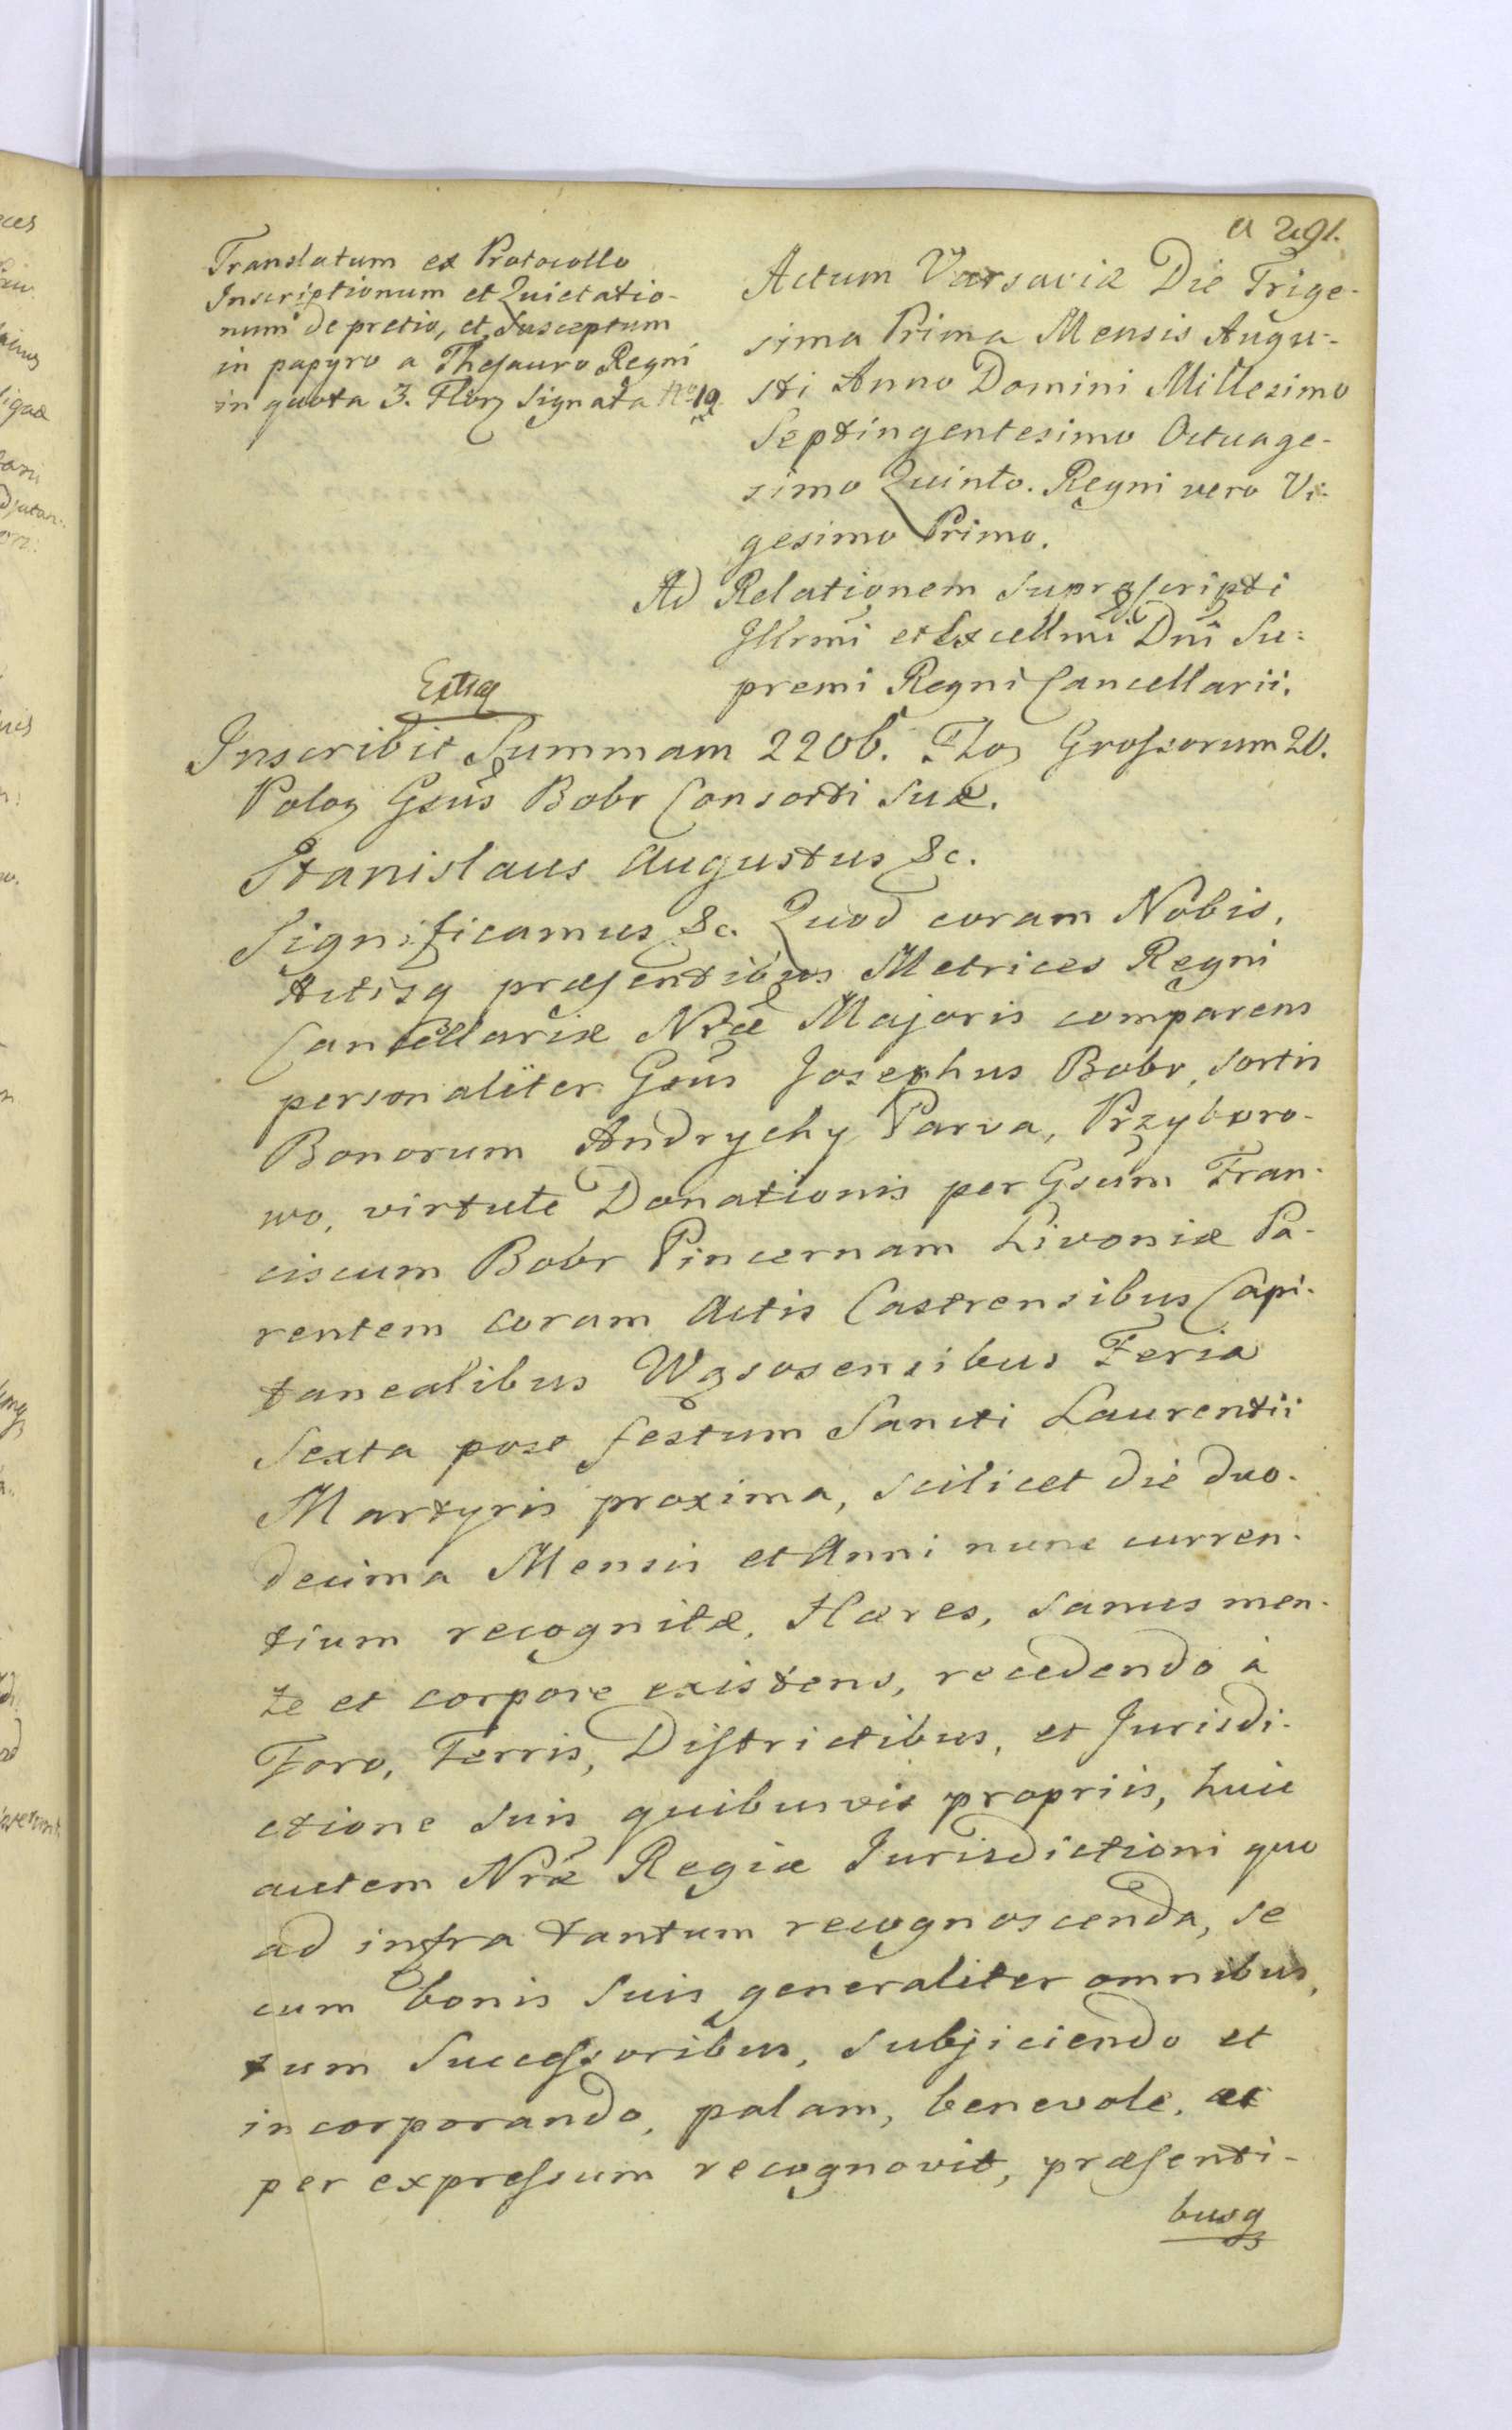 291.
Translatum ex Protocollo
Inscriptionum et Quietatio-
num de pretio, et Susceptum
in papyro a Thesauro Regni
in quota 3. Flor Signata Nro 19
Actum Varsaviæ Die Trige-
sima Prima Mensis Augu-
sti Anno Domini Millesimo
Septingentesimo Octuage-
simo Quinto. Regni vero Vi-
gesimo Primo.
Ad Relationem Suprascripti
Illrmi et Excellmi Dni Su-
premi Regni Cancellarii.
Inscribit Summam 2206. Flor Grossorum 20.
Polon Gsus Bobr Consorti Suæ.
Stanislaus Augustus &c.
Significamus &c. Quod coram Nobis,
Actisq præsentibus Metrices Regni
Cancellariæ Nræ Majoris comparens
personaliter Gsus Josephus Bobr, Sortis
Bonorum Andrychy Parva, Przyboro-
wo, virtute Donationis per Gsum Fran-
ciscum Bobr Pincernam Livoniæ Pa-
rentem coram Actis Castrensibus Capi-
tanealibus Wąsosensibus Feria
Sexta post festum Sancti Laurentii
Martyris proxima, scilicet die duo-
decima Mensis et Anni nunc curren-
tium recognitæ, Hæres, sanus men-
te et corpore existens, recedendo à
Foro, Terris, Districtibus, et Jurisdi-
ctione suis quibusvis propriis, huic
autem Nræ Regiæ Jurisdictioni quo
ad infra tantum recognoscenda, se
cum bonis suis generaliter omnibus,
tum Successoribus, subjiciendo et
incorporando, palam, benevole, ac
per expressum recognovit, præsenti-
busq